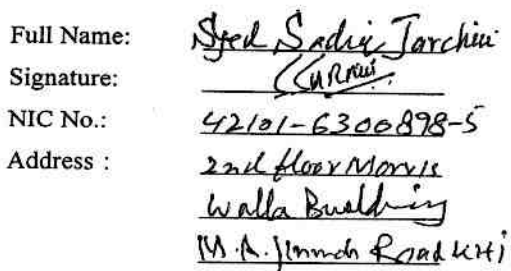 Full Name: Syed Sadir Tarchui
Signature:
NIC No.: 42101-6300898-5
Address : 2nd floor Morris
Walla Building
M.A. Jinnah Road KHI